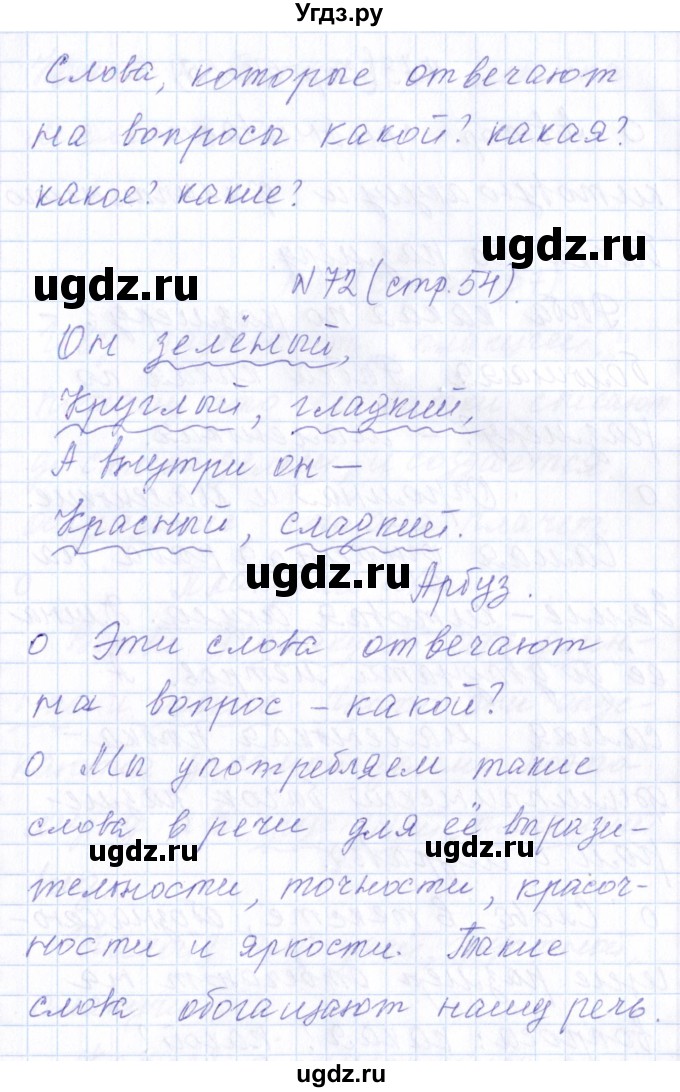 Угдз.ру
Слова, которые отвечают
на вопросы какой? какая?
какое? какие?
ugdz.ru
ugdz.ru
N 72 (стр. 54).
Он зелёный,
Круглый, гладкий,
А внутри он –
Красный, сладкий.
ugdz.ru
Арбуз.
о Эти слова отвечают
на вопрос – какой?
о Мы употребляем такие
слова в речи для её вырази-
ugdz.ru
ugdz.ru
тельности, точности, красоч-
ности и яркости. Такие
слова обогащают нашу речь.
ugdz.ru